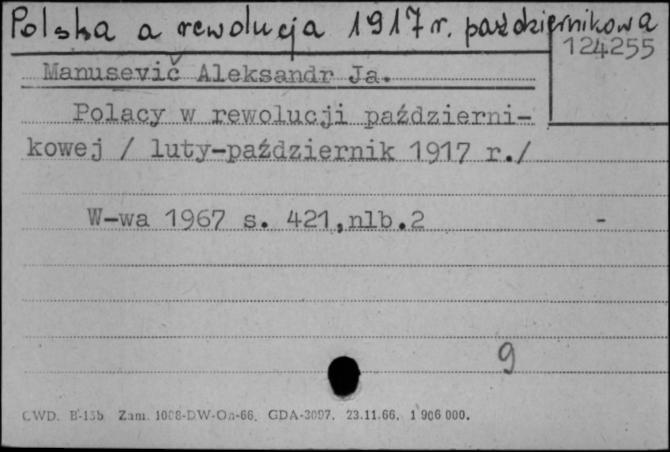 Polska a rewolucja 1917 r. październikowa
124255
Manusevič Aleksandr Ja.
Polacy w rewolucji październi-
kowej / luty-październik 1917 r./
W-wa 1967 s. 421,nlb.2 -
9
CWD. B-15b Zam. 1008-DW-On-66. GDA-3097. 23.11.66. 1 906 000.